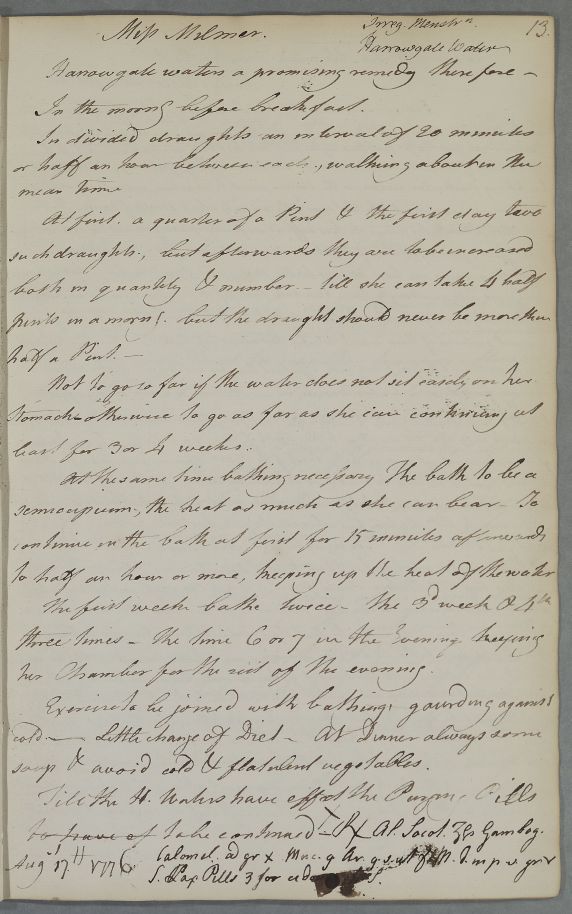 Miss Milmer.
Irreg. Menstrn.
Harrowgate Water
13.
Harrowgate waters a promising remedy therefore –
In the morng before breakfast.
In divided draughts an interval of 20 minutes
or half an hour between each, walking about in the
mean time
At first a quarter of a Pint & the first day two
such draughts, but afterwards they are to be increased
both in quantity & number – till she can take 4 half
Pints in a morng. but the draught should never be more than
half a Pint. –
Not to go so far if the water does not sit easily on her
Stomach – otherwise to go as far as she can continuing at
least for 3 or 4 weeks.
At the same time bathing necessary The bath to be a
semicupium, the heat as much as she can bear – To
continue in the bath at first for 15 minutes afterwards
to half an hour or more, keeping up the heat of the water
The first week bathe twice – the 3d week & 4th
three times – the time 6 or 7 in the Evening keeping
her Chamber for the rest of the evening.
Exercise to be joined with bathing, guarding against
cold – Little change of Diet – At Dinner always some
soup & avoid cold & flatulent vegetables.
Till the H. Waters have effect the Purging Pills
to have of to be continued – Rx Al. Socot. ʒss Gambog.
Augst 17th 1776
Calomel. a gr x Muc. g Ar. q. s. ut f. M.
S. Pax Pills 3 for a dose